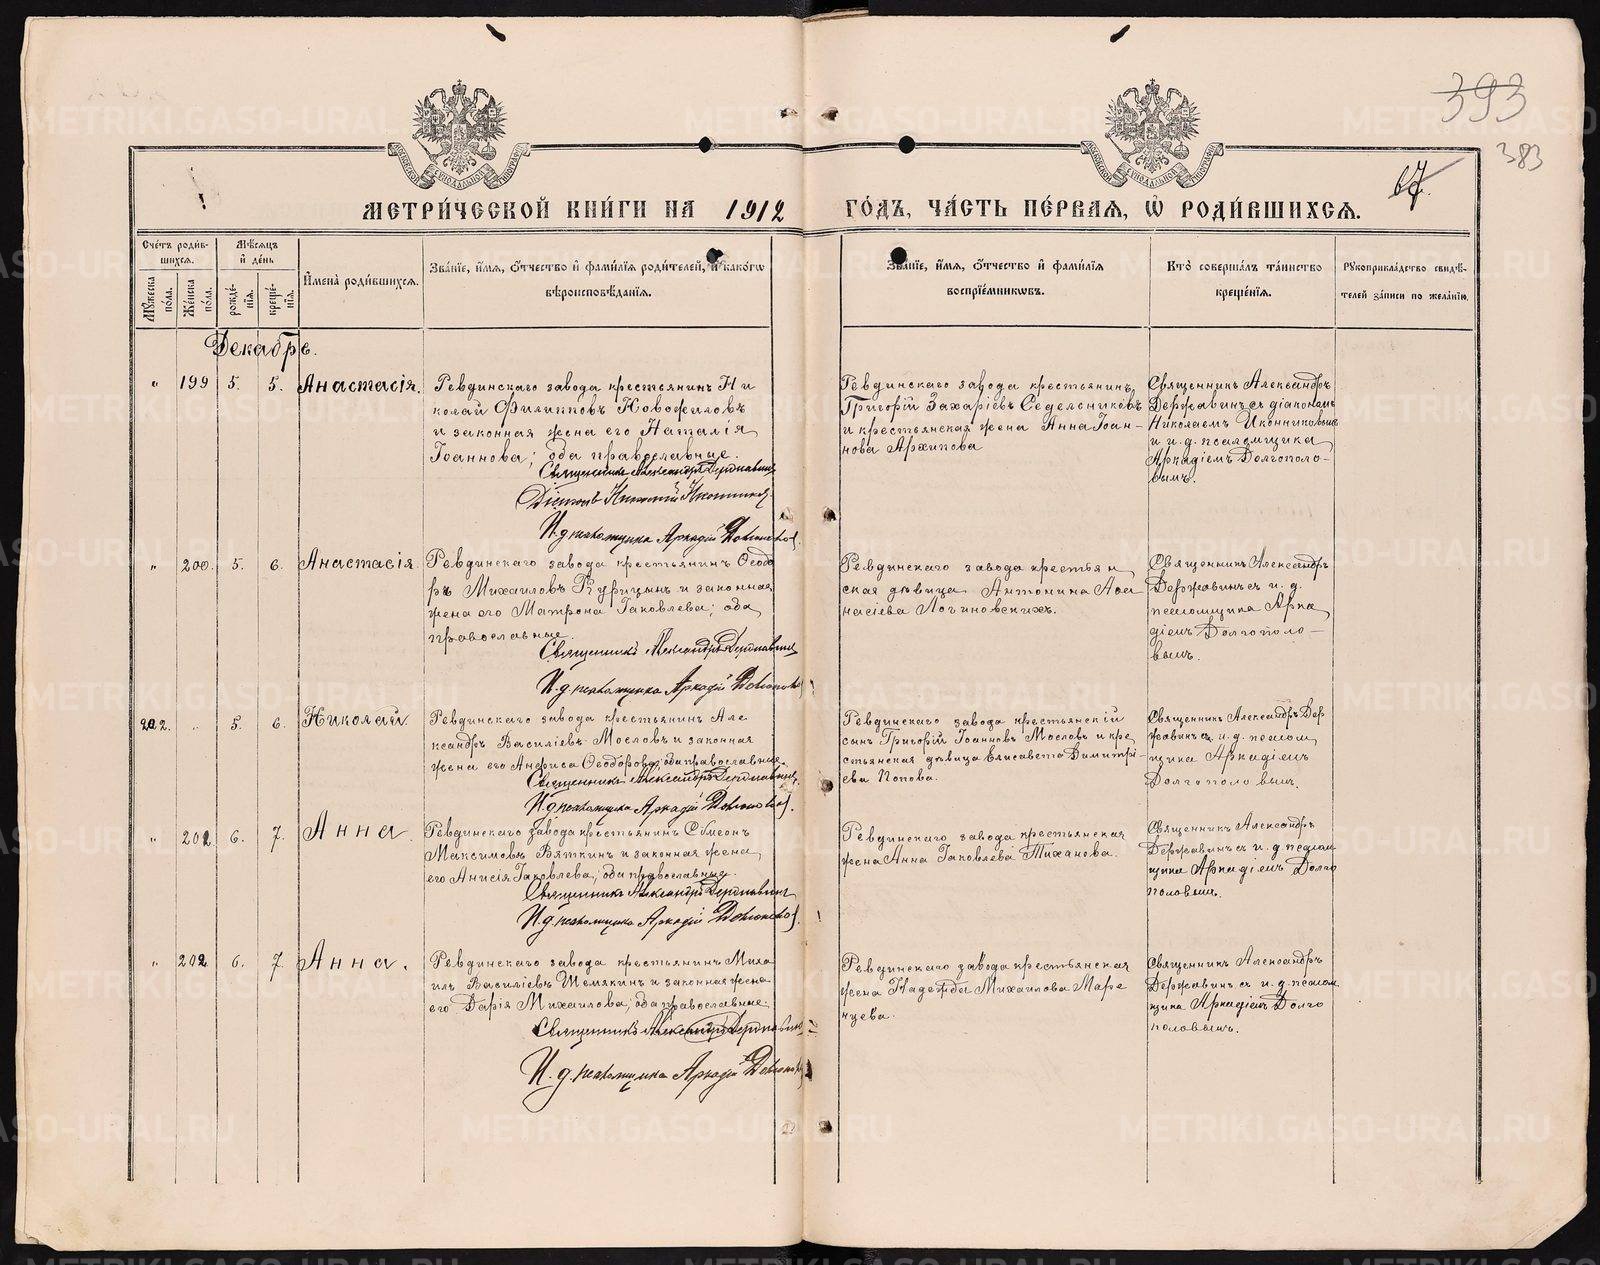 393
383
67.
МЕТРИ́ЧЕСКОЙ КНИ́ГИ НА 1912 ГО́ДЪ, ЧА́СТЬ ПЕ́РВАЯ, Ѡ҆ РОДИ́ВШИХСЯ.
Сче́тъ роди́в-
шихся.
Мѣ́сяцъ
и҆ де́нь
Мꙋ́жеска
по́ла.
Же́нска
по́ла.
рожде́-
нїѧ.
креще́-
нїѧ.
И҆мена̀ роди́вшихся.
Зва́нїе, и҆́мя, ѻ҆́тчество и҆ фами́лїя роди́телей, и҆ како́гѡ
вѣроисповѣ́данїя.
Зва́нїе, и҆́мя, ѻ҆́тчество и҆ фами́лїя
воспрїе́мникѡвъ.
Кто̀ соверша́лъ та́инство
креще́нїя.
Рꙋкоприкла́дство свидѣ́-
телей за́писи по жела́нїю.
Декабрь.
" 199 5. 5. Анастасія.
Ревдинскаго завода крестьянинъ Ни
колай Филипповъ Новожиловъ
и законная жена его Наталія
Іоаннова; оба православные.
Священникъ Александръ Державинъ
Діаконъ Николай Иконниковъ
И.д. псаломщика Аркадій Долгополов
Ревдинскаго завода крестьянинъ
Григорій Захаріевъ Седельниковъ
и крестьянская жена Анна Іоан-
нова Архипова
Священникъ Александръ
Державинъ съ діакономъ
Николаемъ Иконниковымъ
и и. д. псаломщика
Аркадіемъ Долгополо-
вымъ.
" 200. 5. 6. Анастасія.
Ревдинскаго завода крестьянинъ Ѳеодо
ръ Михаиловъ Курицынъ и законная
жена его Матрона Іаковлева; оба
православные.
Священникъ Александръ Державинъ
И.д. псаломщика Аркадій Долгополов
Ревдинскаго завода крестьян
ская дѣвица Антонина Аѳа
насіева Логиновскихъ.
Священникъ Александръ
Державинъ съ и. д.
псаломщика Арка
діемъ Долгополо-
вымъ.
202. " 5. 6. Николай
Ревдинскаго завода крестьянинъ Але
ксандръ Василіевъ Мословъ и законная
жена его Анфиса Ѳеодорова; оба православные.
Священникъ Александръ Державинъ.
И.д. псаломщика Аркадій Долгополов.
Ревдинскаго завода крестьянскій
сынъ Григорій Іоанновъ Мословъ и кре
стьянская дѣвица Елисавета Димитрі-
ева Попова.
Священникъ Александръ Дер
жавинъ съ и. д. псалом
щика Аркадіемъ
Долгополовымъ.
" 201 6. 7. Анна.
Ревдинскаго завода крестьянинъ Сѵмеонъ
Максимовъ Вяткинъ и законная жена
его Анисія Іаковлева; оба православные.
Священникъ Александръ Державинъ
И.д. псаломщика Аркадій Долгополов.
Ревдинскаго завода крестьянская
жена Анна Іаковлева Тиханова.
Священникъ Александръ
Державинъ съ и. д. псалом
щика Аркадіемъ Долго
половымъ.
" 202 6. 7. Анна.
Ревдинскаго завода крестьянинъ Миха
илъ Василіевъ Шемякинъ и законная жена
его Дарія Михаилова, оба православные.
Священникъ Александръ Державинъ
И.д. псаломщика Аркадій Долгополов
Ревдинскаго завода крестьянская
жена Надежда Михаилова Маре
нцева.
Священникъ Александръ
Державинъ съ и. д. псалом
щика Аркадіемъ Долго
половымъ.
METRIKI.GASO-URAL.RU